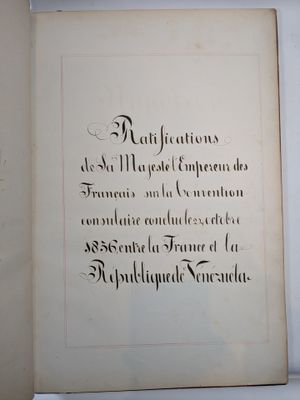 Ratifications
de Sa Majesté l'Empereur des
Français sur la Convention
consulaire conclue le 24 octobre
1856, entre la France et la
République de Vénézuela.